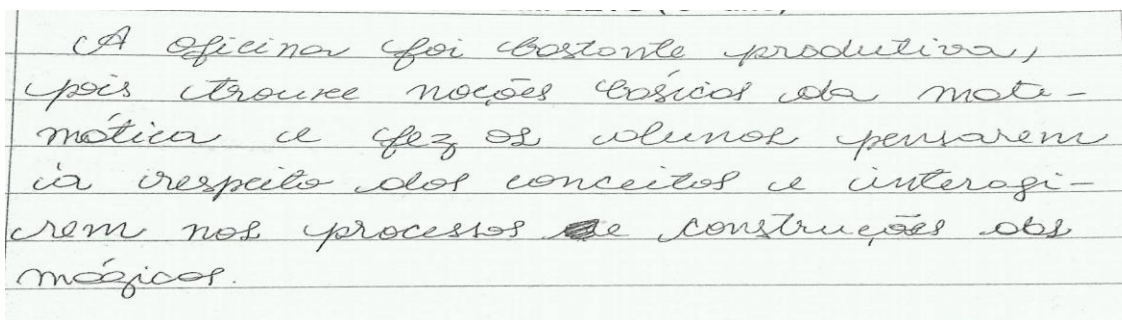 A oficina foi bastante produtiva,
pois trouxe noções básicas da mate-
mática e fez os alunos pensarem
a respeito dos conceitos e interagi-
rem nos processos e construções das
mágicas.